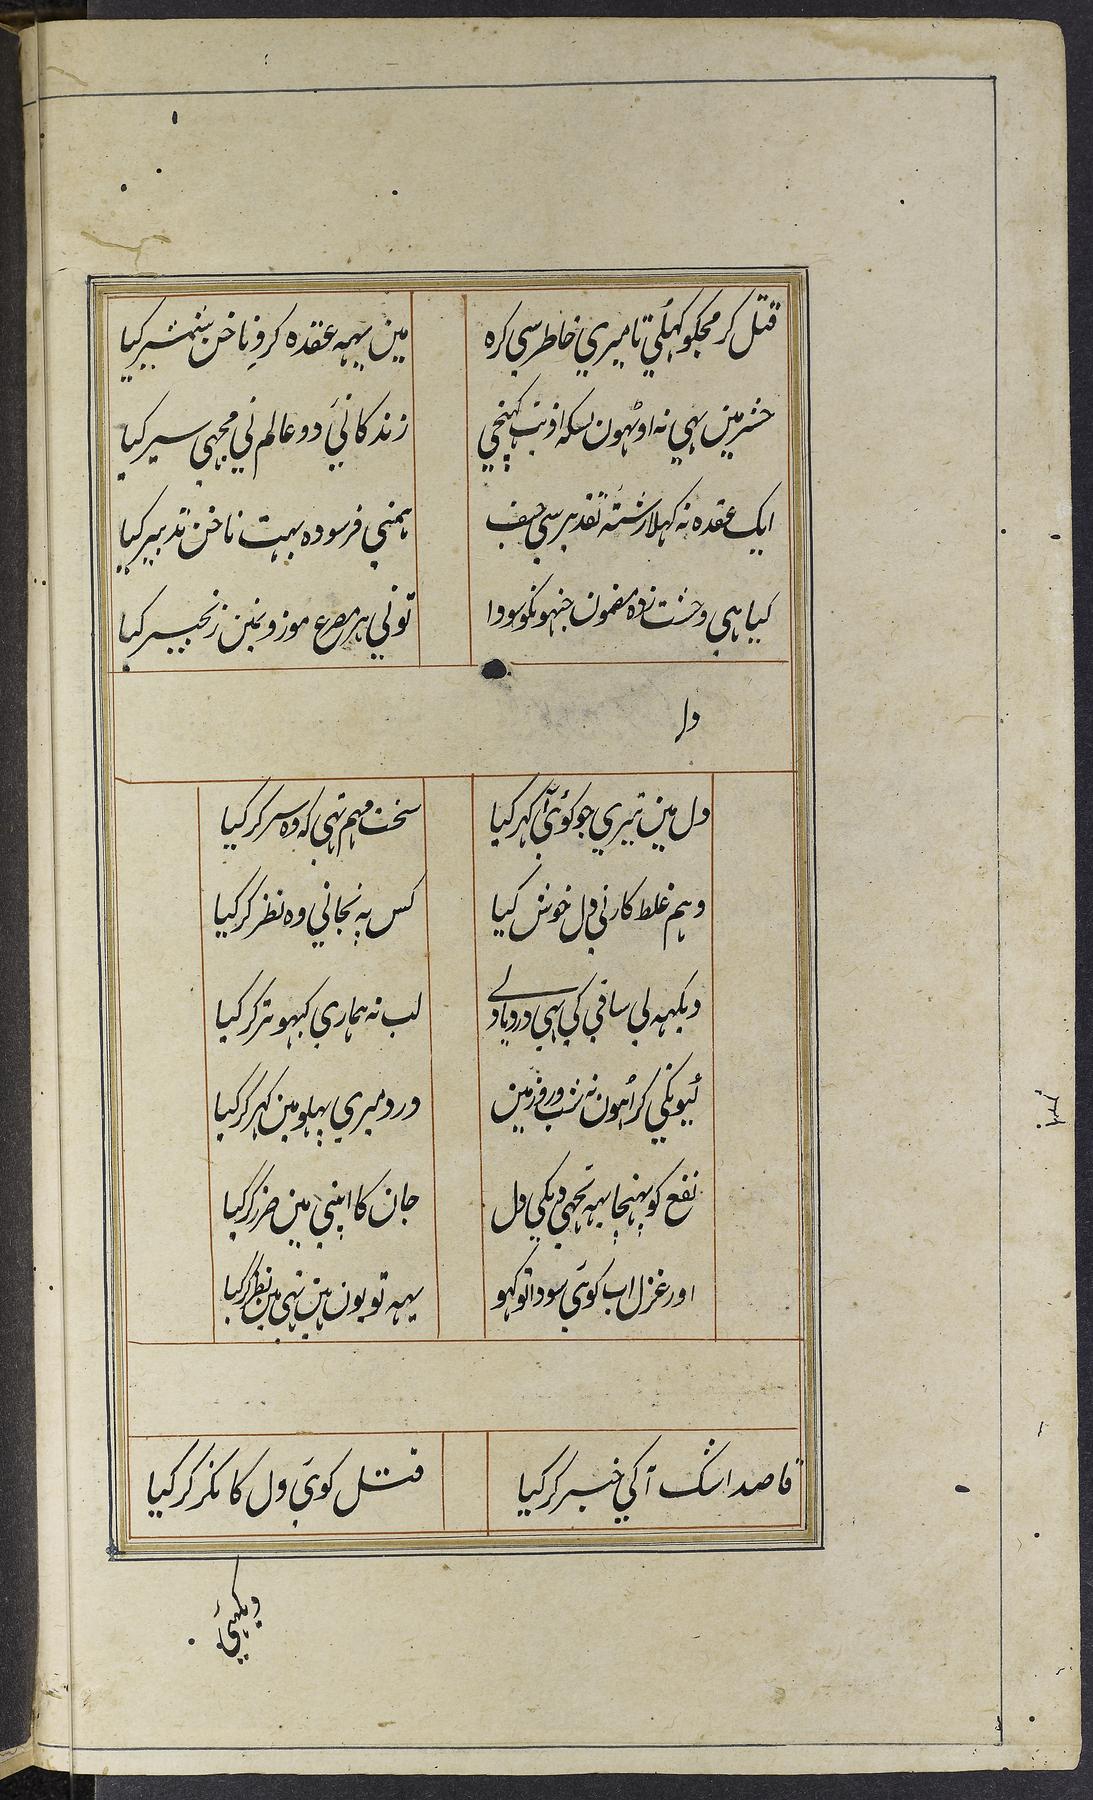 قتل کر مجکو کہلی تا میری خاطر سی کرہ
مین یہہ عقدہ کروِ ناخن شمشیر کیا
حشر مین بہی نہ اوٹہون بسکہ اذیت کہنچی
زندکانیَ دو عالم نی مجہی سیر کیا
ایک عقدہ نہ کہلا رشتہٗ تقدیر سی حیف
ہمنی فرسودہ بہت ناخن تدبیر کیا
کیا ہی وحشت زدہ مضمون جنہونکو سودا
تونی ہر مصرع موزو نمین زنجیر کیا
ولہ
دل مین تیری جو کوئی آ کہر کیا
سخت مہم تہی کہ وہ سر کر کیا
وہم غلط کار نی دل خوش کیا
کس پہ نجانی وہ نظر کر کیا
دیکہہ لی ساقی کی بہی دریا دلے
لب نہ ہماری کبہو تر کر کیا
کراہون نہ شب و روز مین
درد میری پہلو مین کہر کر کیا
نفع کو پہنچا یہہ تجہی دیکی دل
جان کا اپنی مین ضرر کر کیا
اور غزل اب کویَ سودا تو کہو
یہہ تو یون ہین تہی مین نظر کر کیا
قاصد اشک آ کی خبر کر کیا
قتل کویَ دل کا نکر کر کیا
دیکہیَ